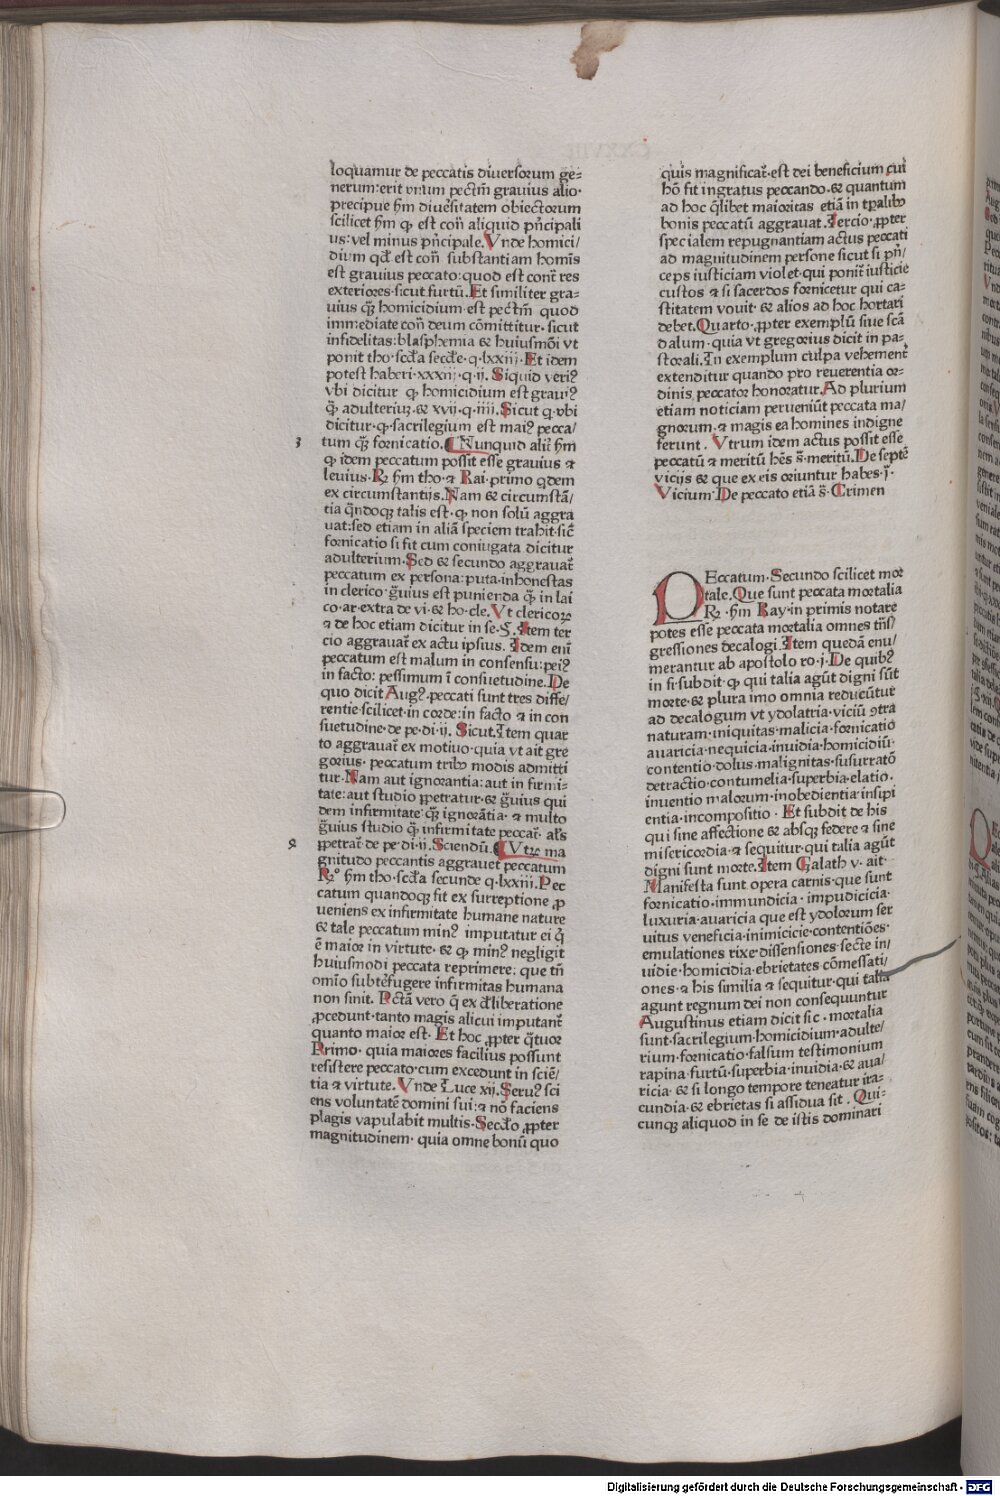 loquamur de peccatis diuersorum ge⸗
nerum·erit vnum pectm̄ grauius alio·
precipue ẜm diuesitatem obiectorum
scilicet ẜm ꝙ est con̄ aliquid pn̄cipali
us: vel minus pn̄cipale. Vnde homici/
dium qđ est con̄ substantiam homīs
est grauius peccato: quod est cont̄ res
exteriores·sicut furtū. Et similiter gra⸗
uius qꝫ homicidium est pectm̄ quod
immediate con̄ deum cōmittitur· sicut
infidelitas: blasphemia & huiusmōi vt
ponit tho·scđa secđe·q·lxxiij· Et idem
potest haberi·xxxiij·q·ij. Siquid veriꝰ
vbi dicitur ꝙ homicidium est grauiꝰ
q̄ adulteriuꝫ·& xvij·q·iiij. Sicut q·vbi
dicitur·ꝙ sacrilegium est maiꝰ pecca/
3 tum qꝫ fornicatio. Nunquid alij ẜm
ꝙ idem peccatum possit esse grauius ⁊
leuius· R̄ ẜm tho·⁊ Rai·primo qdem
ex circumstantijs. Nam & circumstā/
tia qn̄doqꝫ talis est·ꝙ non solū aggra
uat: sed etiam in aliā speciem trahit·sic̄
fornicatio si fit cum coniugata dicitur
adulterium·Sed & secundo aggrauat̄
peccatum ex persona: puta·inhonestas
in clerico·ḡuius est punienda q̄ in lai
co·ar·extra de vi·& ho·cle. Vt clericoꝝ
⁊ de hoc etiam dicitur in se·§. Item ter
cio aggrauat̄ ex actu ipsius. Idem enī
peccatum est malum in consensu: peiꝰ
in facto: pessimum ī consuetudine. De
quo dicit Augꝰ. peccati sunt tres diffe/
rentie·scilicet·in corde: in facto ⁊ in con
suetudine·de pe·di·ij. Sicut. Item quar
to aggrauat̄ ex motiuo·quia vt ait gre
gorius· peccatum tribꝰ modis admitti
tur· Nam aut ignorantia: aut in firmi⸗
tate: aut studio ꝑpetratur·& ḡuius qui
dem infirmitate qꝫ ignorātia·⁊ multo
ḡuius studio q̄ infirmitate peccat̄· als̄
9 ꝑpetrat̄ de pe·di·ij. Sciendū. Vtꝝ ma
gnitudo peccantis aggrauet peccatum
R̄º ẜm tho·scđa secunde q·lxxiii. Pec
catum quandoqꝫ fit ex surreptione ꝓ
ueniens ex infirmitate humane nature
& tale peccatum minꝰ imputatur ei q̄
ē maior in virtute·& ꝙ minꝰ negligit
huiusmodi peccata reprimere: que tn̄
omīo subtefugere infirmitas humana
non sinit. Pctā vero q̄ ex đliberatione
ꝓcedunt·tanto magis alicui imputant̄
quanto maior est· Et hoc ꝓpter q̄tuor
Primo· quia maiores facilius possunt
resistere peccato·cum excedunt in sciē/
tia & virtute. Vnde Luce xij. Seruꝰ sci
ens voluntatē domini sui: ⁊ nō faciens
plagis vapulabit multis·Secđo ꝓpter
magnitudinem· quia omne bonū quo
quis magnificat̄·est dei beneficium cui
hō fit ingratus peccando·& quantum
ad hoc q̄libet maioritas etiā in tꝑalibꝰ
bonis peccatū aggrauat. Tercio·ꝓpter
specialem repugnantiam actus peccati
ad magnitudinem persone sicut si pn̄/
ceps iusticiam violet·qui ponit̄ iusticie
custos ⁊ si sacerdos fornicetur qui ca⸗
stitatem vouit· & alios ad hoc hortari
debet. Quarto·ꝓpter exemplū siue scā
dalum·quia vt gregorius dicit in pa⸗
storali. In exemplum culpa vehement̄
extenditur quando pro reuerentia or⸗
dinis peccator honoratur. Ad plurium
etiam noticiam perueniūt peccata ma/
gnorum·⁊ magis ea homines indigne
ferunt. Vtrum idem actus possit esse
peccatū ⁊ meritū hēs s̄·meritū. De septē
vicijs & que ex eis oriuntur habes·j·
Vicium· De peccato etiā s̄· Crimen
PEccatum·Secundo scilicet mor
tale. Que sunt peccata mortalia
R̄ ·ẜm Ray·in primis notare
potes esse peccata mortalia omnes tn̄s/
gressiones decalogi. Item quedā enu/
merantur ab apostolo ro·j· De quibꝰ
in fi·subdit·ꝙ qui talia agūt digni sūt
morte·& plura imo omnia reducūtur
ad decalogum vt ydolatria·viciū ꝯtra
naturam·iniquitas·malicia·fornicatio
auaricia·nequicia·inuidia·homicidiū·
contentio·dolus·malignitas·susurratō
detractio·contumelia·superbia·elatio·
inuentio malorum·inobedientia·insipi
entia·incompositio · Et subdit de his
qui sine affectione & absqꝫ federe ⁊ sine
misericordia·⁊ sequitur·qui talia agūt
digni sunt morte. Item Galath v· ait·
Manifesta sunt opera carnis·que sunt
fornicatio·immundicia· impudicicia·
luxuria·auaricia que est ydolorum ser
uitus veneficia·inimicicie·contentiōes·
emulationes rixe·dissensiones·secte in/
uidie·homicidia·ebrietates cōmessati/
ones·⁊ his similia ⁊ sequitur·qui talia
agunt regnum dei non consequuntur
Augustinus etiam dicit sic· mortalia
sunt·sacrilegium·homicidium·adulte/
rium·fornicatio·falsum testimonium
rapina·furtū·superbia·inuidia·& aua/
ricia· & si longo tempore teneatur ira⸗
cundia·& ebrietas si assidua sit . Qui⸗
cunqꝫ aliquod in se de istis dominari
Digitalisierung gefördert durch die Deutsche Forschungsgemeinschaft - DFG